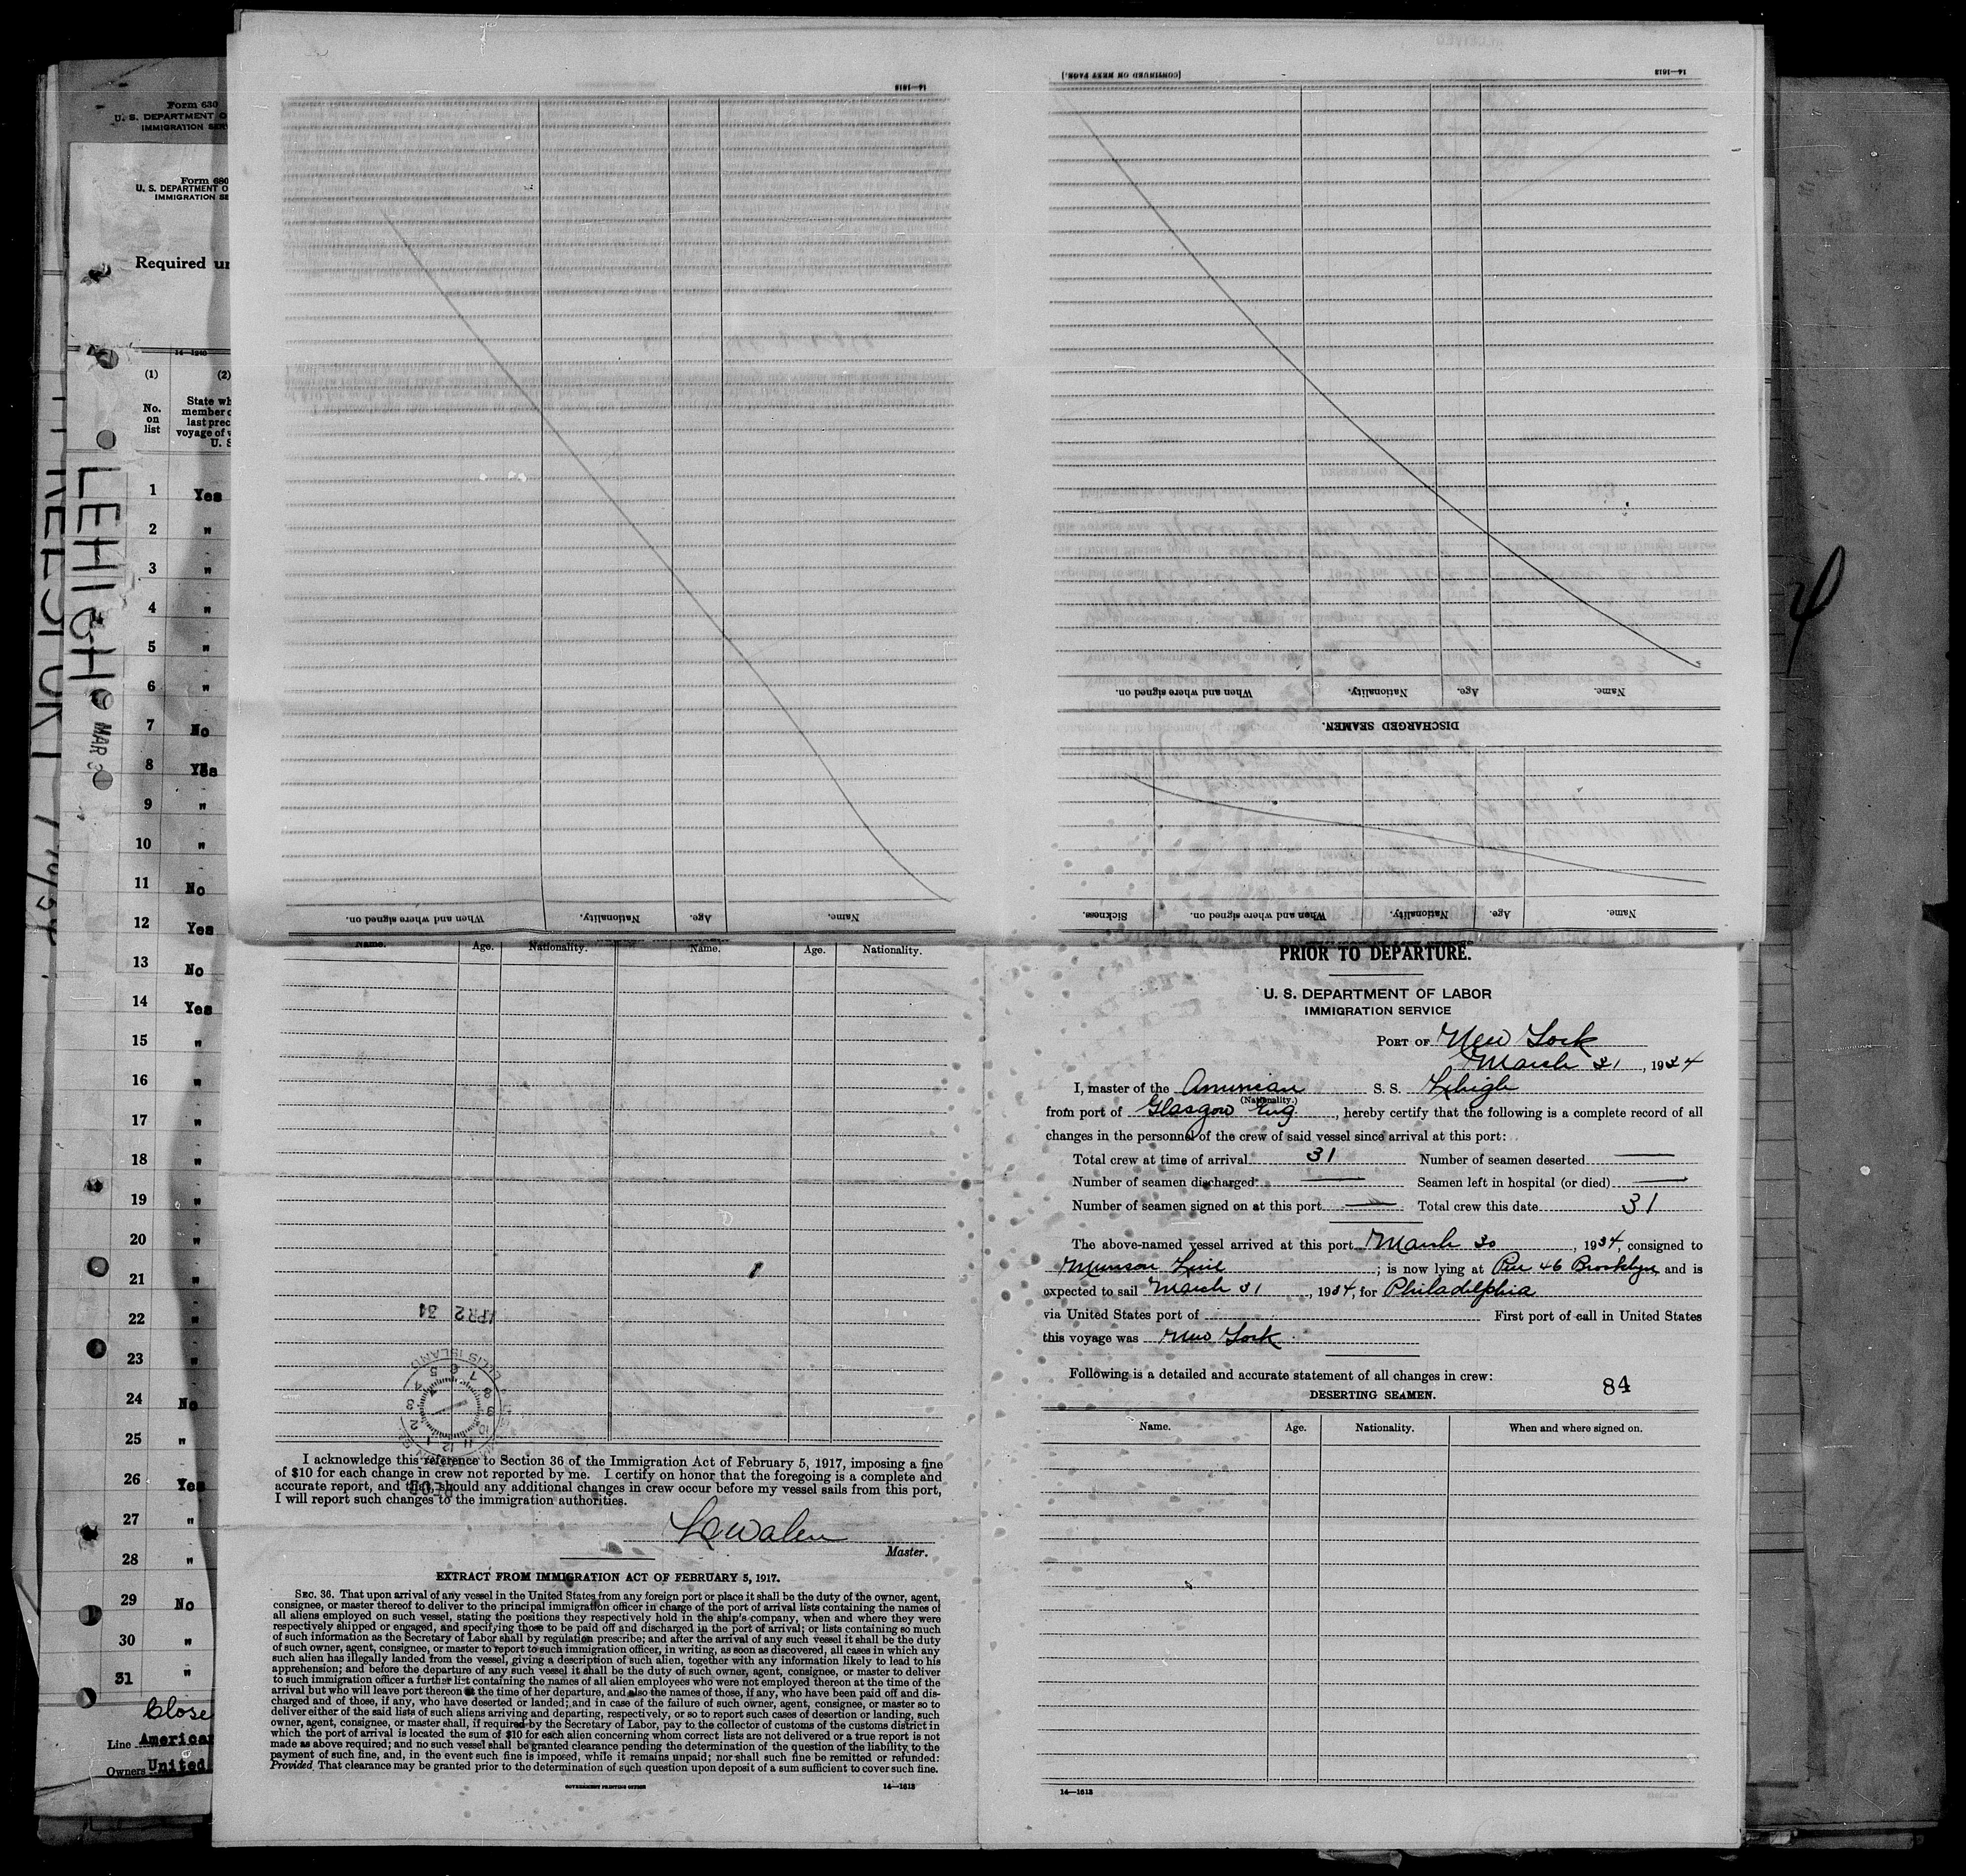 Form 630
U. S. DEPARTMENT O
IMMIGRATION SER
Form 680
U. S. DEPARTMENT O
IMMIGRATION SE
Required un
14—1240
(1)
(2)
No.
on
list
State wh
member o
last prec
voyage of v
U. S
LEHIGH
MAR 3
1 Yes
2 "
3 "
4 "
5 "
6 "
7 No
8 Yes
9 "
10 "
11 No
12 Yes
13 No
14 Yes
15 "
16 "
17 "
18 "
19 "
20 "
21 "
22 "
23 "
24 No
25 "
26 Yes
27 "
28 "
29 No
30 "
31 "
Close
Line America
Owners United
14—1613
When and where signed on.
Nationality.
Age.
Name.
[CONTINUED ON NEXT PAGE.]
14—1613
When and where signed on.
Nationality.
Age.
Name.
DISCHARGED SEAMEN.
Sickness.
When and where signed on.
Nationality.
Age.
Name.
4
Name. Age. Nationality. Name. Age. Nationality.
APR 2 34
ELLIS ISLAND
I acknowledge this reference to Section 36 of the Immigration Act of February 5, 1917, imposing a fine
of $10 for each change in crew not reported by me. I certify on honor that the foregoing is a complete and
accurate report, and that, should any additional changes in crew occur before my vessel sails from this port,
I will report such changes to the immigration authorities.
Master.
EXTRACT FROM IMMIGRATION ACT OF FEBRUARY 5, 1917.
SEC. 36. That upon arrival of any vessel in the United States from any foreign port or place it shall be the duty of the owner, agent,
consignee, or master thereof to deliver to the principal immigration officer in charge of the port of arrival lists containing the names of
all aliens employed on such vessel, stating the positions they respectively hold in the ship's company, when and where they were
respectively shipped or engaged, and specifying those to be paid off and discharged in the port of arrival; or lists containing so much
of such information as the Secretary of Labor shall by regulation prescribe; and after the arrival of any such vessel it shall be the duty
of such owner, agent, consignee, or master to report to such immigration officer, in writing, as soon as discovered, all cases in which any
such alien has illegally landed from the vessel, giving a description of such alien, together with any information likely to lead to his
apprehension; and before the departure of any such vessel it shall be the duty of such owner, agent, consignee, or master to deliver
to such immigration officer a further list containing the names of all alien employees who were not employed thereon at the time of the
arrival but who will leave port thereon at the time of her departure, and also the names of those, if any, who have been paid off and dis-
charged and of those, if any, who have deserted or landed; and in case of the failure of such owner, agent, consignee, or master so to
deliver either of the said lists of such aliens arriving and departing, respectively, or so to report such cases of desertion or landing, such
owner, agent, consignee, or master shall, if required by the Secretary of Labor, pay to the collector of customs of the customs district in
which the port of arrival is located the sum of $10 for each alien concerning whom correct lists are not delivered or a true report is not
made as above required; and no such vessel shall be granted clearance pending the determination of the question of the liability to the
payment of such fine, and, in the event such fine is imposed, while it remains unpaid; nor shall such fine be remitted or refunded:
Provided, That clearance may be granted prior to the determination of such question upon deposit of a sum sufficient to cover such fine.
GOVERNMENT PRINTING OFFICE
14—1613
PRIOR TO DEPARTURE.
U. S. DEPARTMENT OF LABOR
IMMIGRATION SERVICE
PORT OF New York
March 31, 1934
I, master of the American S. S. Lehigh
(Nationality.)
from port of Glasgow Eng, hereby certify that the following is a complete record of all
changes in the personnel of the crew of said vessel since arrival at this port:
Total crew at time of arrival 31 Number of seamen deserted —
Number of seamen discharged — Seamen left in hospital (or died) —
Number of seamen signed on at this port — Total crew this date 31
The above-named vessel arrived at this port March 30, 1934, consigned to
Munson Line; is now lying at Pier 46 Brooklyn and is
expected to sail March 31, 1934, for Philadelphia
via United States port of First port of call in United States
this voyage was New York
Following is a detailed and accurate statement of all changes in crew:
84
DESERTING SEAMEN.
Name. Age. Nationality. When and where signed on.
14—1613